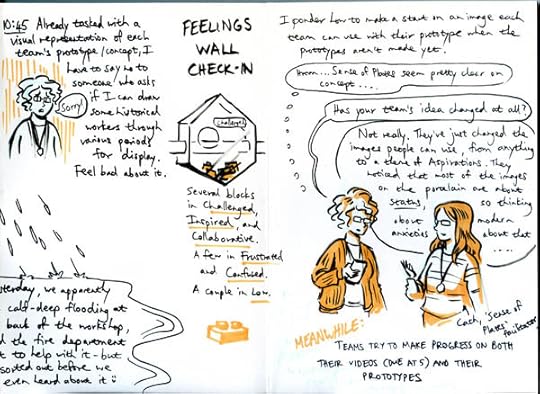 10:45 Already tasked with a
visual representation of each
team's prototype/concept, I
have to say no to
someone who asks
if I can draw
some historical
workers through
various periods
for display.
Feel bad about it.
Sorry!
yesterday, we apparently
calf-deep flooding at
back of the workshop,
d the fire department
to help with it - but
sorted out before we
even heard about it
FEELINGS
WALL
CHECK-IN
Challenged
Several blocks
in Challenged,
Inspired, and
Collaborative.
A few in Frustrated
and Confused.
A couple in Low.
I ponder how to make a start on an image each
team can use with their prototype when the
prototypes aren't made yet.
Hmm... Sense of Plates seem pretty clear on
concept....
Has your team's idea changed at all?
Not really. They've just changed the
images people can use, from anything
to a theme of Aspirations. They
noticed that most of the images
on the porcelain are about
status, so thinking
about modern
anxieties about that
....
Cath, 'Sense of
Plates' facilitator
MEANWHILE:
TEAMS TRY TO MAKE PROGRESS ON BOTH
THEIR VIDEOS (DUE AT 5) AND THEIR
PROTOTYPES